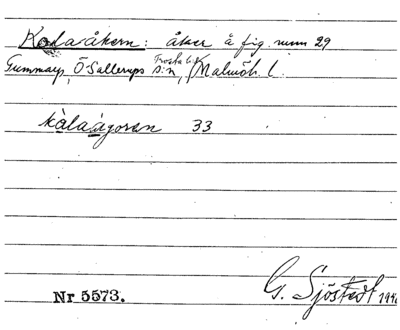 Kolaåkern: åker å fig. num 29
Gummarp, Ö Sallerups s:n, Frosta h., Malmöh. l.
kàlaágoran 33
G. Sjöstedt
Nr 5573.